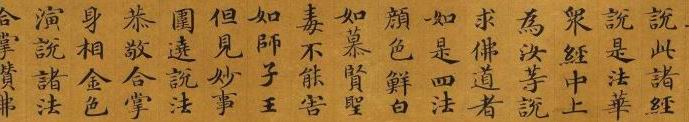 說此諸經
說是法華
衆經中上
為汝等說
求佛道者
如是四法
顔色鮮白
如慕賢聖
毒不能害
如師子王
但見妙事
圍遶說法
恭敬合掌
身相金色
演說諸法
合掌讃佛